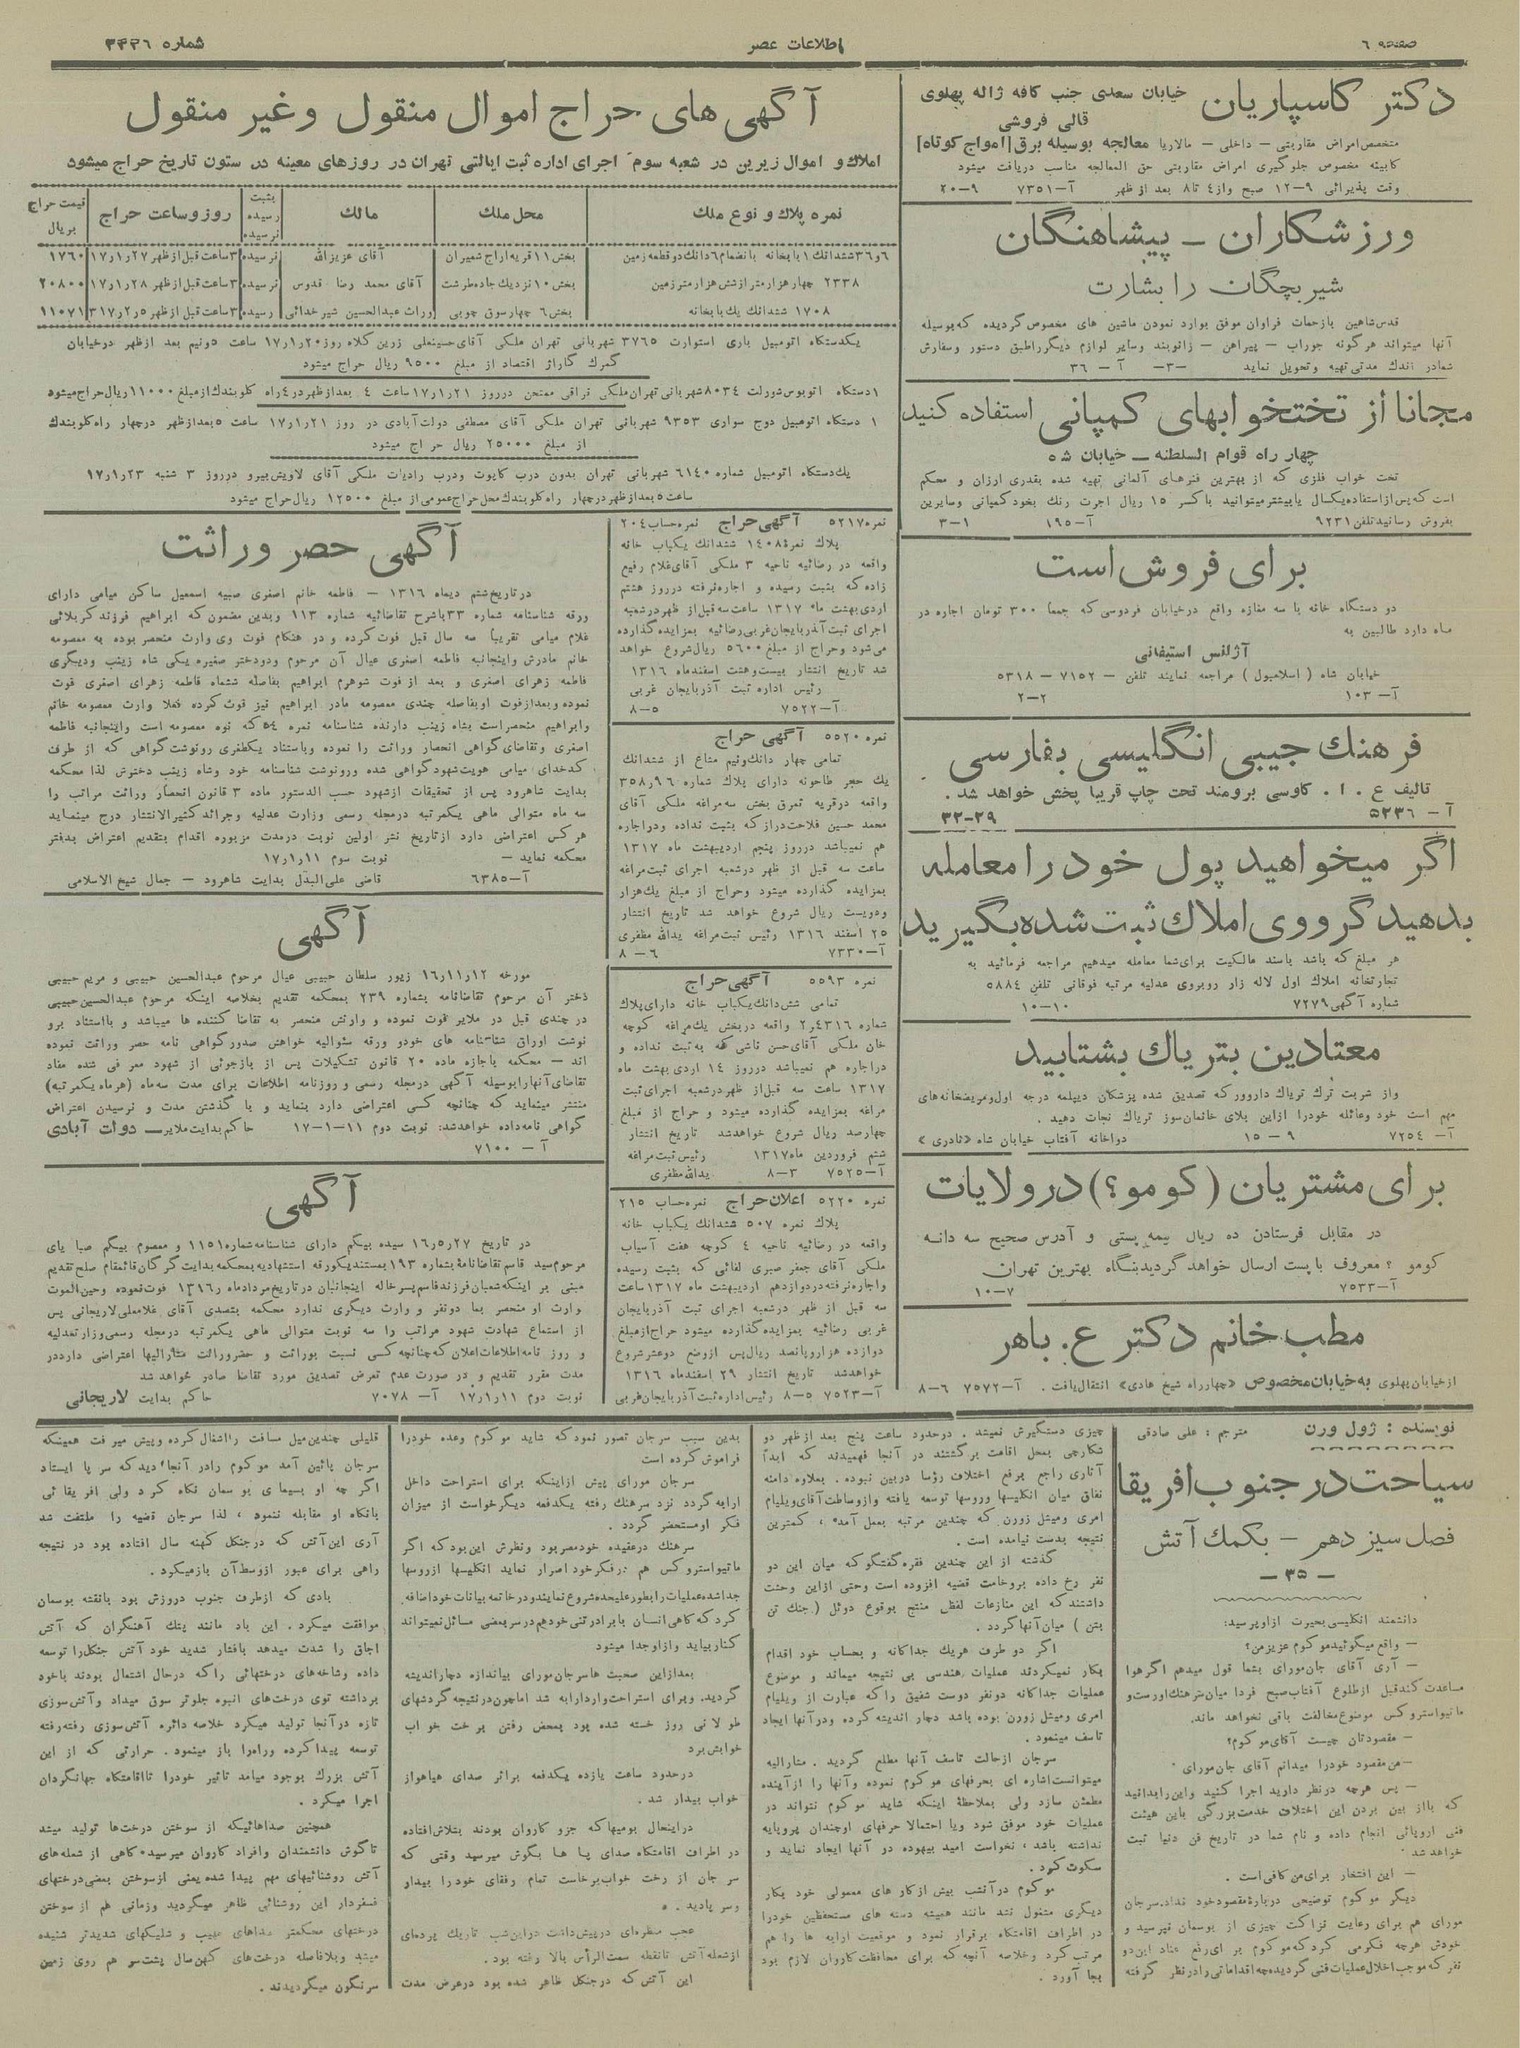 صفحه ٦
اطلاعات عصر
شماره ۳۴۳٦
دکتر کاسپاریان
خیابان سعدی جنب کافه ژاله پهلوی
قالی فروشی
متخصص امراض مقاربتی – داخلی – مالاریا معالجه بوسیله برق [امواج کوتاه]
کابینه مخصوص جلوگیری امراض مقاربتی حق المعالجه مناسب دریافت میشود
وقت پذیرائی ۹–۱۲ صبح و از ٤ تا ۸ بعد از ظهر آ–۷۳۵۱ ۹–۲۰
ورزشکاران – پیشاهنگان
شیر بچگان را بشارت
قدس شاهین با زحمات فراوان موفق بوارد نمودن ماشین های مخصوص گردیده که بوسیله
آنها میتواند هرگونه جوراب – پیراهن – زانوبند وسایر لوازم دیگر را طبق دستور وسفارش
شما در اندك مدتی تهیه و تحویل نماید –۳– آ – ۳٦
مجانا از تختخوابهای کمپانی استفاده کنید
چهار راه قوام السلطنه – خیابان شاه
تخت خواب فلزی که از بهترین فنرهای آلمانی تهیه شده بقدری ارزان و محکم
است که پس از استفاده یکسال یا بیشتر میتوانید با کسر ۱۵ ریال اجرت رنك بخود کمپانی و سایرین
بفروش رسانید تلفن ۹۲۳۱ آ–۱۹۵ ۱–۳
برای فروش است
دو دستگاه خانه با سه مغازه واقع در خیابان فردوسی که جمعا ۳۰۰ تومان اجاره در
ماه دارد طالبین به
آژانس استیفانی
خیابان شاه ( اسلامبول ) مراجعه نمایند تلفن – ۷۱۵۲ – ۵۳۱۸
آ– ۱۰۳ ۲–۲
فرهنك جیبی انگلیسی بفارسی
تالیف ع . ا . کاوسی برومند تحت چاپ قریبا پخش خواهد شد .
آ – ۵۲۳٦ ۲۹–۳۲
اگر میخواهید پول خود را معامله
بدهید گرو وی املاك ثبت شده بگیرید
هر مبلغ که باشد باسند مالکیت برای شما معامله میدهیم مراجعه فرمائید به
تجارتخانه املاك اول لاله زار روبروی عدلیه مرتبه فوقانی تلفن ۵۸۸٤
شماره آگهی ۷۲۷۹ ۱۰–۱۰
معتادین بتریاك بشتابید
و از شربت ترك تریاك داروور که تصدیق شده پزشکان دیپلمه درجه اول و مریضخانه های
مهم است خود وعائله خودرا ازاین بلای خانمان سوز تریاك نجات دهید .
آ– ۷۲۵٤ ۹ – ۱۵ دواخانه آفتاب خیابان شاه «نادری»
برای مشتریان (کومو؟) در ولایات
در مقابل فرستادن ده ریال بیمه پستی و آدرس صحیح سه دانه
کومو ؟ معروف با پست ارسال خواهد گردید بنگاه بهترین تهران
آ–۷۵۳۳ ۷–۱۰
مطب خانم دکتر ع. باهر
از خیابان پهلوی به خیابان مخصوص «چهارراه شیخ هادی» انتقال یافت . آ–۷۵۷۲ ٦–۸
آگهی های حراج اموال منقول وغیر منقول
املاك و اموال زیرین در شعبه سوم اجرای اداره ثبت ایالتی تهران در روزهای معینه در ستون تاریخ حراج میشود
نمره پلاك و نوع ملك | محل ملك | مالك | بثبت رسیده نرسیده | روز وساعت حراج | قیمت حراج بریال
٦ و ۳٦ ششدانك ۱ با بخانه با نضمام ٦ دانك دو قطعه زمین | بخش ۱۱ قریه اراج شمیران | آقای عزیزالله | نرسیده | ۳ ساعت قبل از ظهر ۱۷٫۱٫۲۷ | ۱۷٦۰
۲۳۳۸ چهار هزار متر از شش هزار متر زمین | بخش ۱۰ نزدیك جاده طرشت | آقای محمد رضا قدوس | نرسیده | ۳ ساعت قبل از ظهر ۱۷٫۱٫۲۸ | ۲۰۸۰۰
۱۷۰۸ ششدانك یك بابخانه | بخش ٦ چهارسوق چوبی | وراث عبدالحسین شیر خدائی | رسیده | ۳ ساعت قبل از ظهر ۳۱۷٫۲٫۵ | ۱۱۰۷۱
یکدستگاه اتومبیل باری استوارت ۳۷٦۵ شهربانی تهران ملکی آقای حسینعلی زرین کلاه روز ۱۷٫۱٫۲۰ ساعت ۵ ونیم بعد از ظهر در خیابان
گمرك گاراژ اقتصاد از مبلغ ۹۵۰۰ ریال حراج میشود
۱ دستگاه اتوبوس شورلت ۸۰۳٤ شهربانی تهران ملکی نراقی ممتحن در روز ۱۷٫۱٫۲۱ ساعت ٤ بعد از ظهر در ٤ راه کلوبندك از مبلغ ۱۱۰۰۰ ریال حراج میشود
۱ دستگاه اتومبیل دوج سواری ۹۳۵۳ شهربانی تهران ملکی آقای مصطفی دولت آبادی در روز ۱۷٫۱٫۲۱ ساعت ۵ بعد از ظهر در چهار راه کلوبندك
از مبلغ ۲۵۰۰۰ ریال حراج میشود
یك دستگاه اتومبیل شماره ٦۱٤۰ شهربانی تهران بدون درب کاپوت ودرب رادیات ملکی آقای لاویش بیرو در روز ۳ شنبه ۱۷٫۱٫۲۳
ساعت ۵ بعد از ظهر در چهار راه کلوبندك محل حراج عمومی از مبلغ ۱۲۵۰۰ ریال حراج میشود
نمره ۵۲۱۷ آگهی حراج نمره حساب ۲۰٤
پلاك نمره ۱٤۰۸ ششدانك یکباب خانه
واقعه در رضائیه ناحیه ۳ ملکی آقای غلام رفیع
زاده که بثبت رسیده و اجاره نرفته در روز هشتم
اردی بهشت ماه ۱۳۱۷ ساعت سه قبل از ظهر در شعبه
اجرای ثبت آذربایجان غربی رضائیه بمزایده گذارده
می شود و حراج از مبلغ ۵٦۰۰ ریال شروع خواهد
شد تاریخ انتشار بیست وهشت اسفند ماه ۱۳۱٦
رئیس اداره ثبت آذربایجان غربی
آ–۷۵۲۲ ۵–۸
نمره ۵۵۲۰ آگهی حراج
تمامی چهار دانك ونیم مشاع از ششدانك
یك حجر طاحونه دارای پلاك شماره ۹٦ر۳۵۸
واقعه در قریه تمرق بخش سه مراغه ملکی آقای
محمد حسین فلاحت دراز که بثبت نداده ودر اجاره
هم نمیباشد در روز پنجم اردیبهشت ماه ۱۳۱۷
ساعت سه قبل از ظهر در شعبه اجرای ثبت مراغه
بمزایده گذارده میشود وحراج از مبلغ یك هزار
ودویست ریال شروع خواهد شد تاریخ انتشار
۲۵ اسفند ۱۳۱٦ رئیس ثبت مراغه یدالله مظفری
آ–۷۳۳۰ ٦–۸
نمره ۵۵۹۳ آگهی حراج
تمامی شش دانك یکباب خانه دارای پلاك
شماره ٤۳۱٦ر۲ واقعه در بخش یك مراغه کوچه
خان ملکی آقای حسن ناشی که به ثبت نداده و
در اجاره هم نمیباشد در روز ۱٤ اردی بهشت ماه
۱۳۱۷ ساعت سه قبل از ظهر در شعبه اجرای ثبت
مراغه بمزایده گذارده میشود و حراج از مبلغ
چهارصد ریال شروع خواهد شد تاریخ انتشار
ششم فروردین ماه ۱۳۱۷ رئیس ثبت مراغه
آ–۷۵۲۵ ۳–۸ یدالله مظفری
نمره ۵۲۲۰ اعلان حراج نمره حساب ۲۱۵
پلاك نمره ۵۰۷ ششدانك یکباب خانه
واقعه در رضائیه ناحیه ٤ کوچه هفت آسیاب
ملکی آقای جعفر صبری لفائی که بثبت رسیده
واجاره نرفته در دوازدهم اردیبهشت ماه ۱۳۱۷ ساعت
سه قبل از ظهر در شعبه اجرای ثبت آذربایجان
غربی رضائیه بمزایده گذارده میشود حراج از مبلغ
دوازده هزار و پانصد ریال پس از وضع دو عشر شروع
خواهد شد تاریخ انتشار ۲۹ اسفند ماه ۱۳۱٦
آ–۷۵۲۳ ۵–۸ رئیس اداره ثبت آذربایجان غربی
آگهی حصر وراثت
در تاریخ ششم دیماه ۱۳۱٦ – فاطمه خانم اصغری صبیه اسمعیل ساکن میامی دارای
ورقه شناسنامه شماره ۳۳ باشرح تقاضائیه شماره ۱۱۳ وبدین مضمون که ابراهیم فرزند کربلائی
غلام میامی تقریبا سه سال قبل فوت کرده و در هنگام فوت وی وارث منحصر بوده به معصومه
خانم مادرش واینجانبه فاطمه اصغری عیال آن مرحوم ودودختر صغیره یکی شاه زینب ودیگری
فاطمه زهرای اصغری و بعد از فوت شوهرم ابراهیم بفاصله ششماه فاطمه زهرای اصغری فوت
نموده و بعد از فوت او بفاصله چندی معصومه مادر ابراهیم نیز فوت کرده فعلا وارث معصومه خانم
وابراهیم منحصر است بشاه زینب دارنده شناسنامه نمره ۵٤ که نوه معصومه است واینجانبه فاطمه
اصغری وتقاضای گواهی انحصار وراثت را نموده وباستناد یکطغری رونوشت گواهی که از طرف
کدخدای میامی هویت شهود گواهی شده ورونوشت شناسنامه خود وشاه زینب دخترش لذا محکمه
بدایت شاهرود پس از تحقیقات از شهود حسب الدستور ماده ۳ قانون انحصار وراثت مراتب را
سه ماه متوالی ماهی یکمرتبه در مجله رسمی وزارت عدلیه وجرائد کثیرالانتشار درج مینماید
هر کس اعتراضی دارد از تاریخ نشر اولین نوبت در مدت مزبوره اقدام بتقدیم اعتراض بدفتر
محکمه نماید – نوبت سوم ۱۷٫۱٫۱۱
آ–٦۳۸۵ قاضی علی البدل بدایت شاهرود – جمال شیخ الاسلامی
آگهی
مورخه ۱٦٫۱۱٫۱۲ زیور سلطان حبیبی عیال مرحوم عبدالحسین حبیبی و مریم حبیبی
دختر آن مرحوم تقاضانامه بشماره ۲۳۹ بمحکمه تقدیم بخلاصه اینکه مرحوم عبدالحسین حبیبی
در چندی قبل در ملایر فوت نموده و وارثش منحصر به تقاضا کننده ها میباشد و بااستناد برو
نوشت اوراق شناسنامه های خودو ورقه سئوالیه خواهش صدور گواهی نامه حصر وراثت نموده
اند – محکمه باجازه ماده ۲۰ قانون تشکیلات پس از بازجوئی از شهود معرفی شده مفاد
تقاضای آنهارا بوسیله آگهی در مجله رسمی و روزنامه اطلاعات برای مدت سه ماه (هر ماه یکمرتبه)
منتشر مینماید که چنانچه کسی اعتراضی دارد بنماید و با گذشتن مدت و نرسیدن اعتراض
گواهی نامه داده خواهد شد: نوبت دوم ۱۱–۱–۱۷ حاکم بدایت ملایر – دولت آبادی
آ – ۷۱۰۰
آگهی
در تاریخ ۱٦٫۵٫۲۷ سیده بیگم دارای شناسنامه شماره ۱۱۵۱ و معصوم بیگم صبا یای
مرحوم سید قاسم تقاضا نامهٔ بشماره ۱۹۳ بمستند یکورقه استشهادیه بمحکمه بدایت گرگان قائمقام صلح تقدیم
مبنی بر اینکه شعبان فرزند قاسم پسر خاله اینجانبان در تاریخ مرداد ماه ۱۳۱٦ فوت نموده وحین الموت
وارث او منحصر بما دونفر و وارث دیگری ندارد محکمه بتصدی آقای غلامعلی لاریجانی پس
از استماع شهادت شهود مراتب را سه نوبت متوالی ماهی یکمرتبه در مجله رسمی وزارت عدلیه
و روز نامه اطلاعات اعلان که چنانچه کسی نسبت بوراثت و حصر وراثت مشارالیها اعتراضی دارد در
مدت مقرر تقدیم و در صورت عدم تعرض تصدیق مورد تقاضا صادر خواهد شد
نوبت دوم ۱۷٫۱٫۱۱ آ– ۷۰۷۸ حاکم بدایت لاریجانی
نویسنده : ژول ورن مترجم : علی صادقی
سیاحت در جنوب افریقا
فصل سیزدهم – بکمك آتش
– ۳۵ –
دانشمند انگلیسی بحیرت از او پرسید:
– واقع میگوئید موکوم عزیزمن؟
– آری آقای جان مورای بشما قول میدهم اگر هوا
مساعدت کند قبل از طلوع آفتاب صبح فردا میان سرهنك اورست و
ماتیواستروکس موضوع مخالفت باقی نخواهد ماند.
– مقصودتان چیست آقای موکوم؟
– من مقصود خودرا میدانم آقای جان مورای
– پس هرچه در نظر دارید اجرا کنید و این را بدانید
که با از بین بردن این اختلاف خدمت بزرگی باین هیئت
فنی اروپائی انجام داده و نام شما در تاریخ فن دنیا ثبت
خواهد شد
– این افتخار برای من کافی است .
دیگر موکوم توضیحی دربارهٔ مقصود خود نداد. سرجان
مورای هم برای رعایت نزاکت چیزی از بوسمان نپرسید و
خودش هرچه فکر می کرد که موکوم بر ای رفع عناد این دو
نفر که موجب اخلال عملیات فنی گردیده چه اقداماتی را در نظر گرفته
چیزی دستگیرش نمیشد . در حدود ساعت پنج بعد از ظهر دو
شکارچی بمحل اقامت برگشتند در آنجا فهمیدند که ابداً
آثاری راجع برفع اختلاف رؤسا در بین نبوده . بعلاوه دامنه
نفاق میان انگلیسها وروسها توسعه یافته و از وساطت آقای ویلیام
امری ومیشل زورن که چندین مرتبه بعمل آمده ، کمترین
نتیجه بدست نیامده است .
گذشته از این چندین فقره گفتگو که میان این دو
نفر رخ داده بروخامت قضیه افزوده است وحتی از این وحشت
داشتند که این منازعات لفظی منتج بوقوع دوئل (جنك تن
بتن ) میان آنها گردد .
اگر دو طرف هر یك جداگانه و بحساب خود اقدام
بکار نمیکردند عملیات هندسی بی نتیجه میماند و موضوع
عملیات جداگانه دونفر دوست شفیق را که عبارت از ویلیام
امری ومیشل زورن بوده باشد دچار اندیشه کرده ودر آنها ایجاد
تاسف مینمود .
سرجان از حالت تاسف آنها مطلع گردید . مشارالیه
میتوانست اشاره ای بحرفهای موکوم نموده و آنها را از آینده
مطمئن سازد ولی بملاحظهٔ اینکه شاید موکوم نتواند در
عملیات خود موفق شود ویا احتمالا حرفهای او چندان پروپایه
نداشته باشد ، نخواست امید بیهوده در آنها ایجاد نماید و
سکوت کرد .
موکوم در آنشب بیش از کار های معمولی خود بکار
دیگری مشغول نشد مانند همیشه دسته های مستحفظین خودرا
در اطراف اقامتگاه برقرار نمود و موقعیت ارابه ها را هم
مرتب کرد وخلاصه آنچه که برای محافظت کاروان لازم بود
بجا آورد .
بدین سبب سرجان تصور نمود که شاید موکوم وعده خودرا
فراموش کرده است
سرجان مورای پیش از اینکه برای استراحت داخل
ارابه گردد نزد سرهنك رفته یکدفعه دیگر خواست از میزان
فکر او مستحضر گردد .
سرهنك در عقیده خود مصر بود ونظرش این بود که اگر
ماتیواستروکس هم در فکر خود اصرار نماید انگلیسها از روسها
جدا شده عملیات را بطور علیحده شروع نمایند ودر خاتمه بیانات خود اضافه
کرد که گاهی انسان با برادر تنی خود هم در سر بعضی مسائل نمیتواند
کنار بیاید و از او جدا میشود
بعد از این صحبت ها سرجان مورای بی اندازه دچار اندیشه
گردید. وبرای استراحت وارد ارابه شد اما چون در نتیجه گردشهای
طولانی روز خسته شده بود بمحض رفتن برخت خواب
خوابش برد
در حدود ساعت یازده یکدفعه براثر صدای هیاهو از
خواب بیدار شد .
در اینحال بومیها که جزو کاروان بودند بتلاش افتاده
در اطراف اقامتگاه صدای پا ها بگوش میرسید وقتی که
سر جان از رخت خواب برخاست تمام رفقای خود را بیدار
وسر پا دید .
عجب منظره ای در پیش داشت در این شب تاریك پرده ای
از شعله آتش تا نقطه سمت الرأس بالا رفته بود .
این آتش که در جنگل ظاهر شده بود در عرض مدت
قلیلی چندین میل مسافت را اشغال کرده و پیش میر فت همینکه
سرجان پائین آمد موکوم را در آنجا دید که سر پا ایستاد
اگر چه او بسیمای بوسمان نگاه کرد ولی افریقائی
بانگاه او مقابله ننمود ، لذا سرجان قضیه را ملتفت شد
آری این آتش که در جنگل کهنه سال افتاده بود در نتیجه
راهی برای عبور از وسط آن باز میکرد .
بادی که از طرف جنوب در وزش بود بانقشه بوسمان
موافقت میکرد . این باد مانند پتك آهنگران که آتش
اجاق را شدت میدهد بافشار شدید خود آتش جنگل را توسعه
داده وشاخه های درختهائی را که در حال اشتعال بودند با خود
برداشته توی درخت های انبوه جلوتر سوق میداد وآتش سوزی
تازه در آنجا تولید میکرد خلاصه دائره آتش سوزی رفته رفته
توسعه پیدا کرده وراه را باز مینمود . حرارتی که از این
آتش بزرك بوجود میامد تاثیر خودرا تا اقامتگاه جهانگردان
اجرا میکرد .
همچنین صداهائیکه از سوختن درخت ها تولید میشد
تا گوش دانشمندان وافراد کاروان میرسید گاهی از شعله های
آتش روشنائیهای مهم پیدا شده یعنی از سوختن بعضی درختهای
فسفردار این روشنائی ظاهر میگردید وزمانی هم از سوختن
درختهای محکمتر صداهای مهیب و شلیکهای شدیدتر شنیده
میشد وبلافاصله درخت های کهن سال پشت سر هم روی زمین
سرنگون میگردیدند .